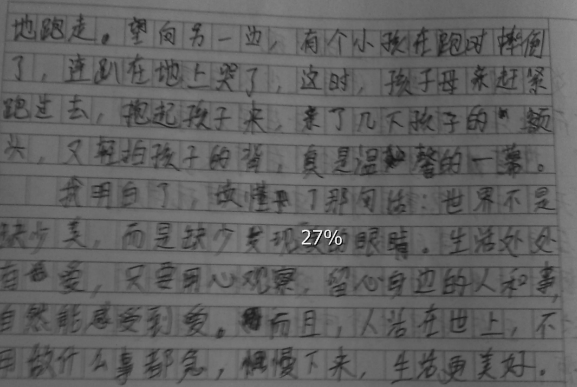 地跑走。望向另一边，有个小孩在跑时摔倒
了，连趴在地上哭了，这时，孩子母亲赶紧
跑过去，抱起孩子来，亲了几下孩子的额
头，又轻拍孩子的背，真是温馨的一幕。
我明白了，读懂了那句话：世界不是
缺少美，而是缺少发现美的眼睛。生活处处
有爱，只要用心观察，留心身边的人和事，
自然能感受到爱。而且，人活在世上，不
用做什么事都急，慢慢下来，生活更美好。
27%